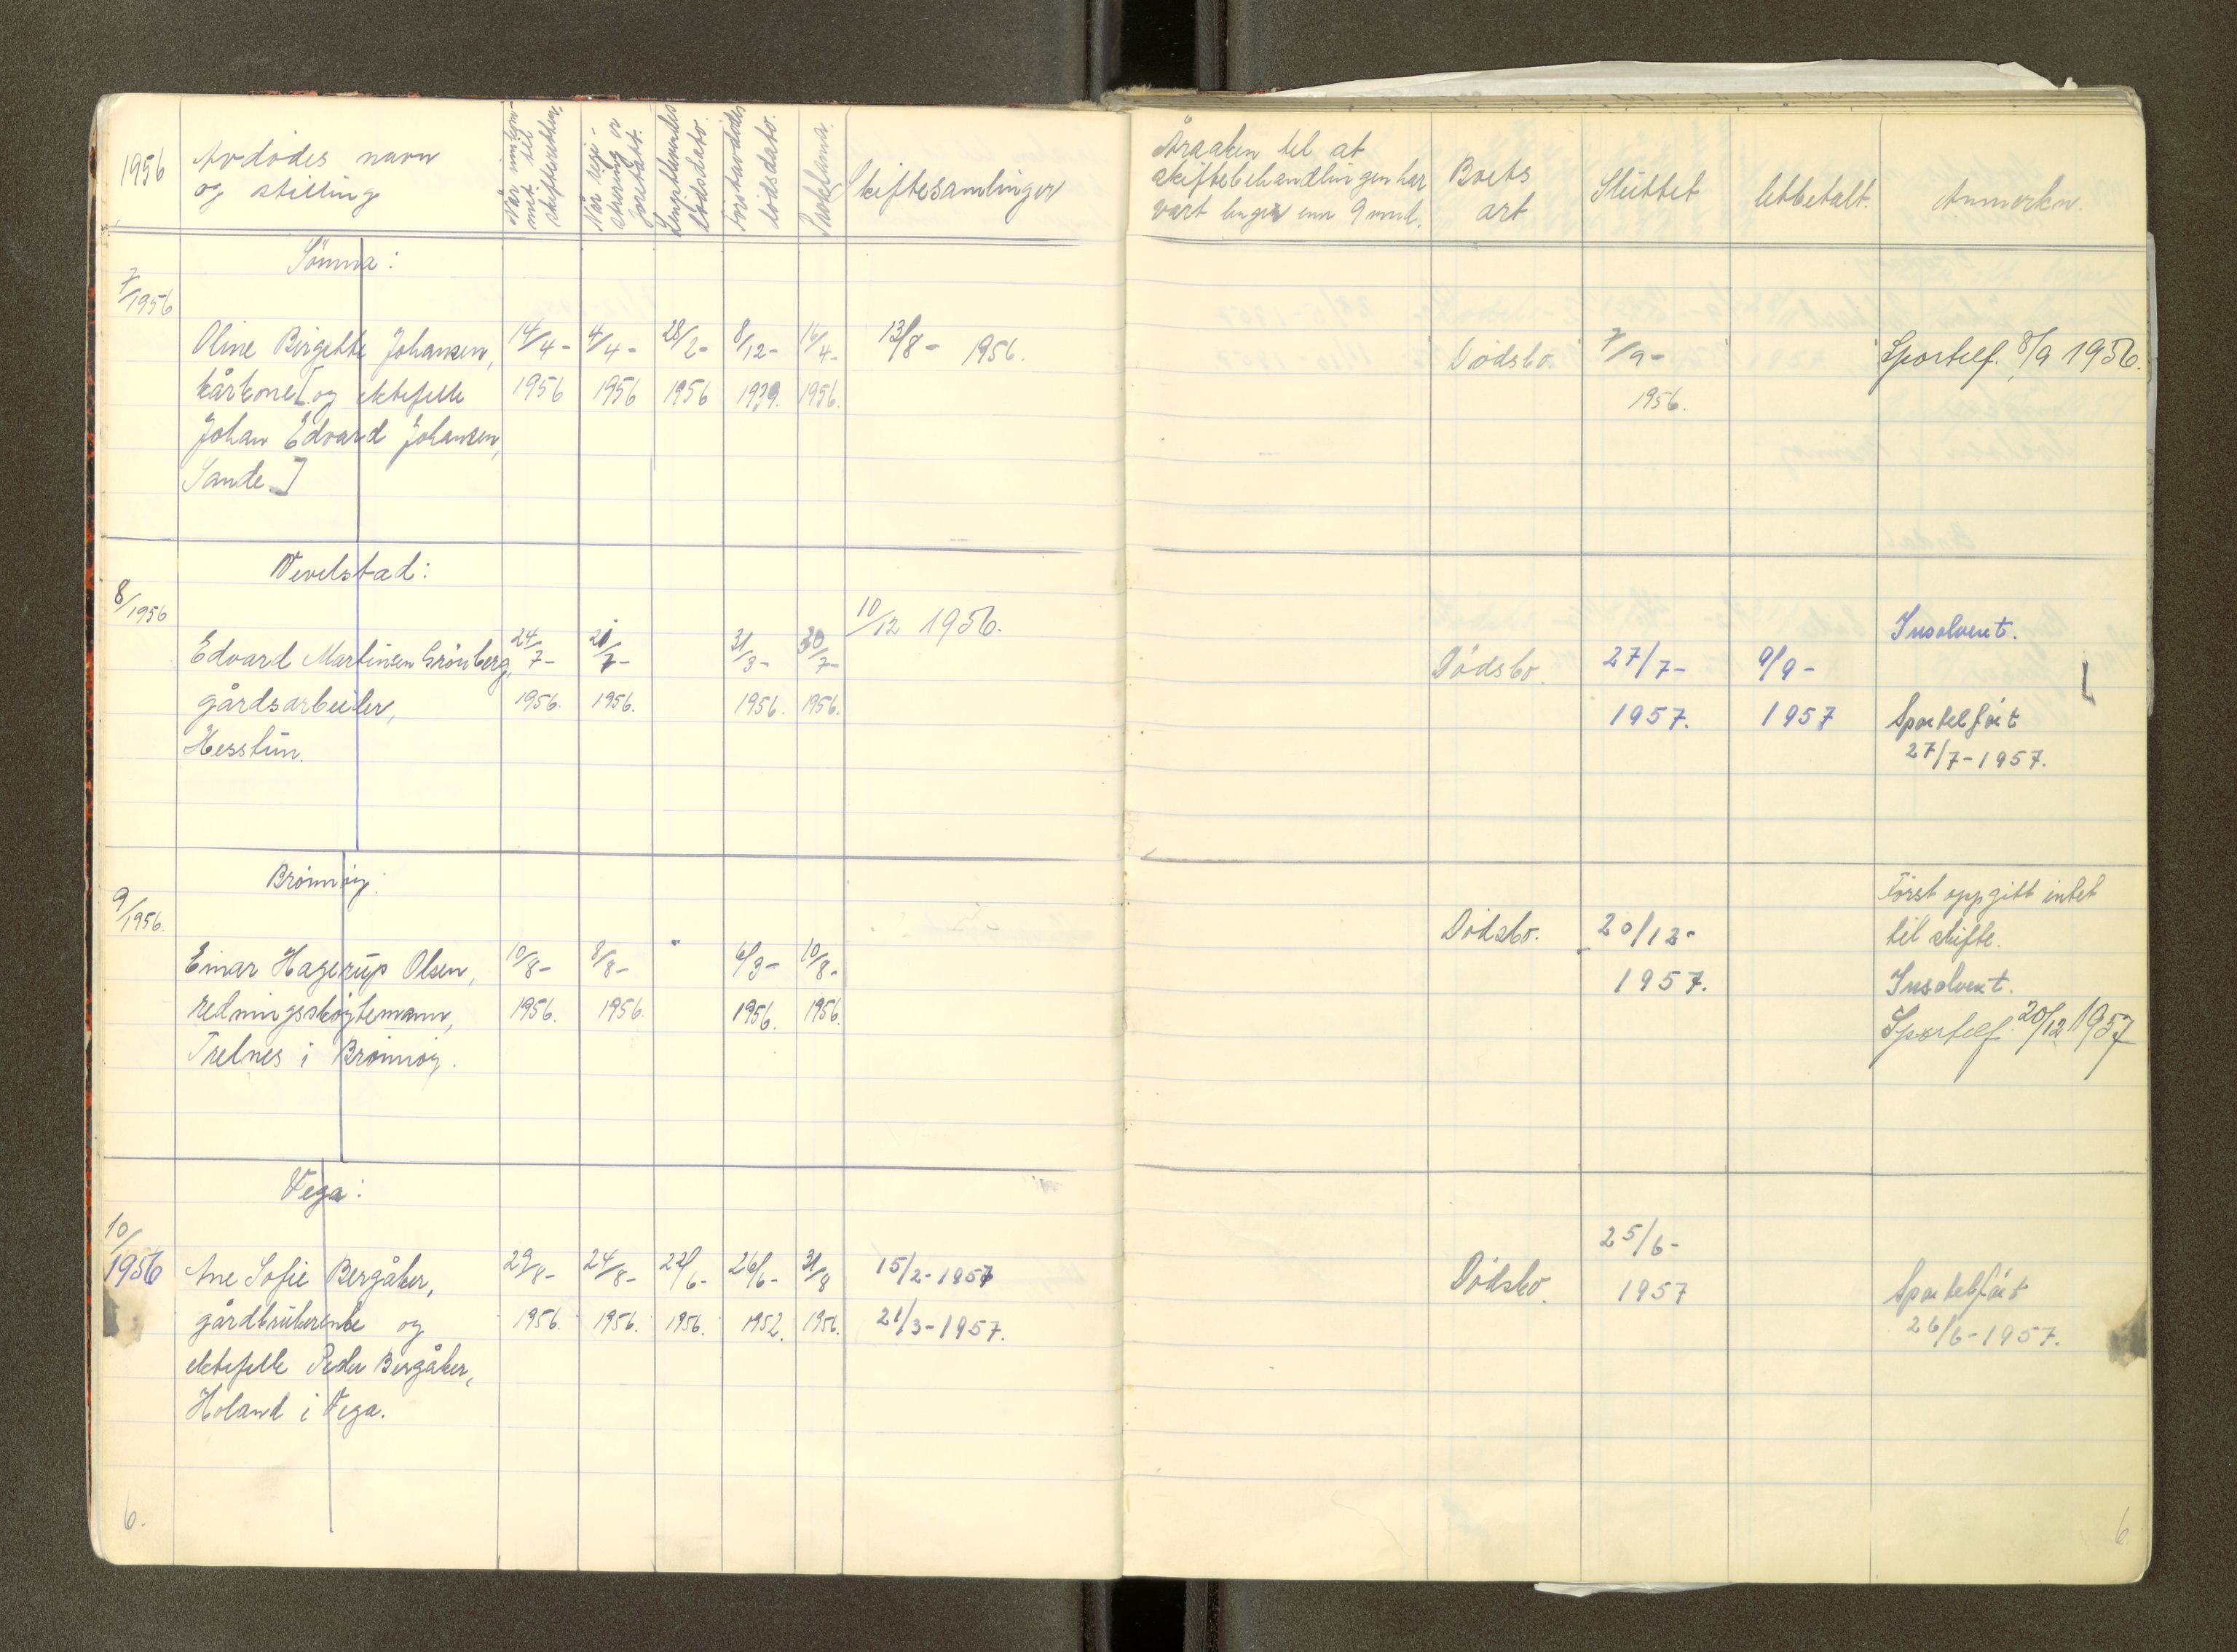 1956
Avdødes navn
og stilling
Når innkom-
met til
skifteretten.
Når regi-
strering er
foretatt.
Lengstlevendes
dødsdato.
Førstavdødes
dødsdato.
Proklama.
Skiftesamlinger
Årsaken til at
skiftebehandlingen har
vart lenger enn 9 mnd.
Boets
art
Sluttet
Utbetalt.
Anmerkn.
Sömna:
7/1956
Oline Birgitte Johansen, 14/4- 4/4- 28/2- 8/12- 16/4- 13/8- 1956. Dødsbo. 7/9- Sportelf. 8/9 1956.
kårkone [og ektefelle 1956 1956 1956 1939. 1956. 1956.
Johan Edvard Johansen,
Sande.]
Vevelstad:
8/1956
10/12 1956. Insolvent.
Edvard Martinsen Grönberg, 24/7- 21/7- 31/3- 30/7- Dødsbo. 27/7- 9/9-
gårdsarbeider, 1956. 1956. 1956. 1956. 1957. 1957 Sportelført
Hesstun. 27/7-1957.
Brönnöy:
9/1956.
Først oppgitt intet
Dødsbo. 20/12- til skifte.
Einar Hagerup Olsen, 10/8- 8/8- 6/3- 10/8- 1957. Insolvent.
redningsskøytemann, 1956. 1956. 1956. 1956. Sportelf. 20/12 1957
Trelnes i Brönnöy.
Vega:
10/1956
25/6-
Ane Sofie Bergåker, 29/8- 24/8- 22/6- 26/6- 31/8 15/2-1957 Dødsbo. 1957 Sportelført
gårdbrukerenke og 1956. 1956. 1956. 1952. 1956. 21/3-1957. 26/6-1957.
ektefelle Peder Bergåker,
Holand i Vega.
6.
6